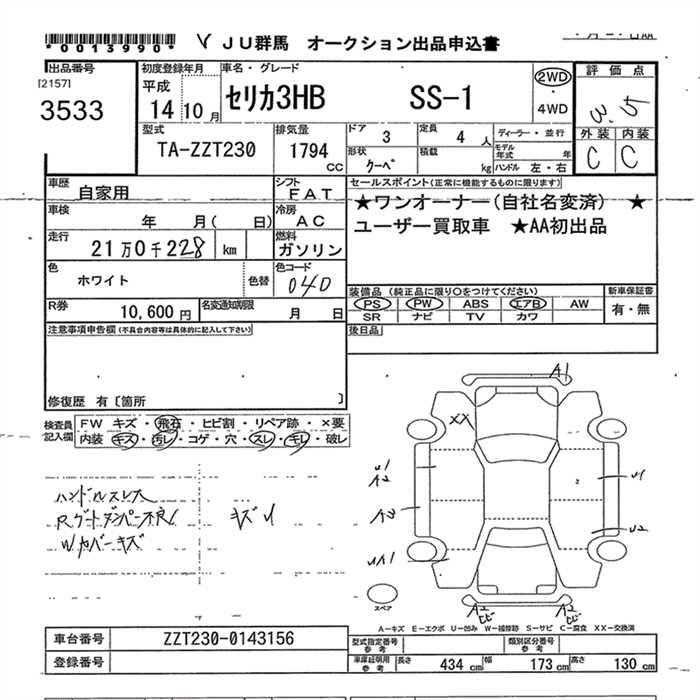 *0013990* V JU群馬 オークション出品申込書
出品番号 初度登録年月 車名・グレード 評価点
[2157] 平成
3533 14 10月 セリカ3HB SS-1 2WD・4WD 3.5
外装 内装
C C
型式 排気量 ドア 3 定員 4 人 ディーラー・並行
TA-ZZT230 1794 CC 形状 クーペ 積載 kg モデル年式 年
ハンドル 左・右
車歴 自家用 シフト FAT
セールスポイント(正常に機能するものに限ります)
★ワンオーナー(自社名変済) ★
ユーザー買取車 ★AA初出品
車検 年 月( 日) 冷房 AC
走行 21万0千228 km 燃料 ガソリン
色 ホワイト 色替 色コード 040
装備品(純正品に限り○をつけてください) 新車保証書
PS PW ABS エアB AW 有・無
SR ナビ TV カワ
R券 10,600円 名変通知期限 月 日
注意事項申告欄(不具合内容等は具体的に記入して下さい) 後日品
修復歴 有〔箇所 〕
検査員記入欄 FW キズ・飛石・ヒビ割・リペア跡・×要
内装 キズ・汚レ・コゲ・穴・スレ・キレ・破レ
ハンドルスレ大
Rゲートダンパー不良 キズU
Wカバーキズ
A1
XX
U1
A2
U1
A3
U2
UA1
スペア
A2
ヒビ
A2
ヒビ
A-キズ E-エクボ U-凹み W-補修跡 S-サビ C-腐食 XX-交換済
車台番号 ZZT230-0143156 型式指定番号 参考 類別区分番号 参考
登録番号 車庫証明用 参考 長さ 434 cm 幅 173 cm 高さ 130 cm